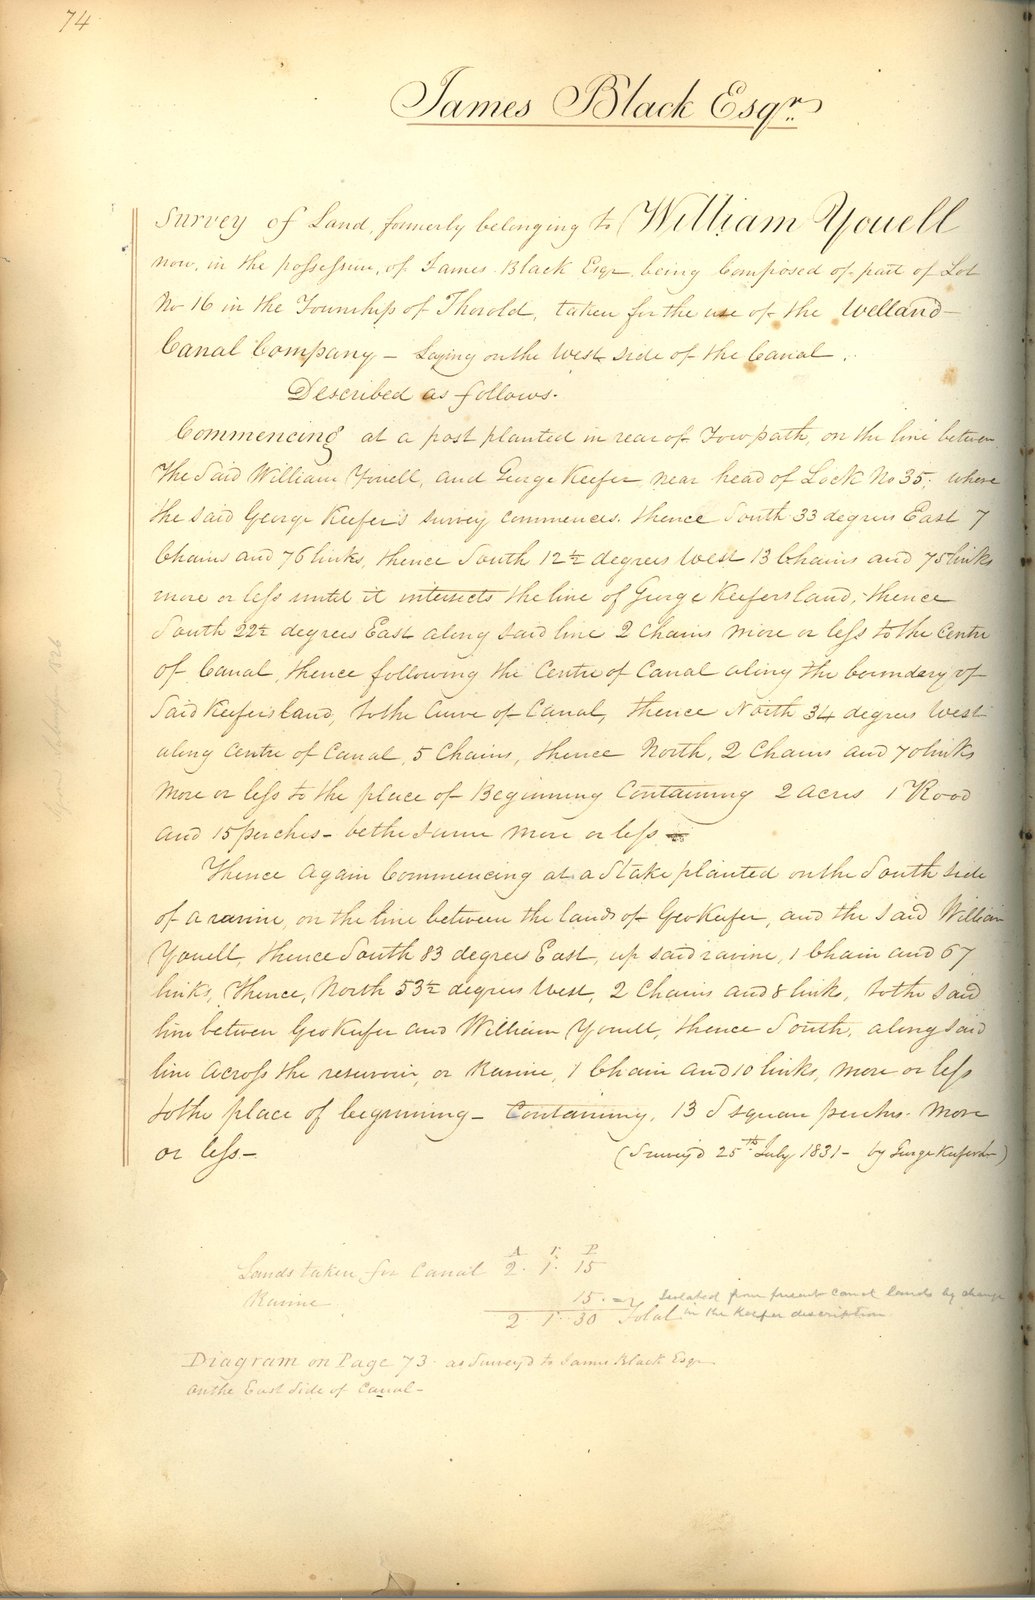 74
James Black Esqr.
Survey of Land, formerly belonging to William Youell
now, in the possession, of James Black Esqr being Composed of part of Lot
No 16 in the Township of Thorold, taken for the use of the Welland
Canal Company – Laying on the West side of the Canal.
Described as follows.
Commencing at a post planted in rear of Towpath, on the line between
The Said William Youell, and George Keefer near head of Lock No 35, where
the said George Keefer's survey commences. thence South 33 degrees East 7
Chains and 76 links, thence South 12½ degrees West 13 Chains and 75 links
more or less until it intersects the line of George Keefers land, thence
South 22½ degrees East along said line 2 Chains more or less to the Centre
of Canal, thence following the Centre of Canal along the boundary of
Said Keefers land, to the Curve of Canal, thence North 34 degrees West
along Centre of Canal, 5 Chains, thence North, 2 Chains and 70 links
more or less to the place of Beginning Containing 2 acres 1 Rood
and 15 perches – be the same more or less
Thence Again Commencing at a Stake planted on the South side
of a ravine, on the line between the lands of Geo Keefer, and the said William
Youell, thence South 83 degrees East, up said ravine, 1 Chain and 67
links, Thence, North 53½ degrees West, 2 Chains and 8 links, to the said
line between Geo Keefer and William Youell, thence South, along said
line Across the reservoir, or Ravine, 1 Chain and 10 links, more or less
to the place of beginning – Containing, 15 square perches. more
or less –
(Survey'd 25th July 1831 – by George Keefer Jr)
A r. P
Lands taken for Canal 2. 1. 15
Ravine 15.
2 1 30 Total
Isolated from present canal lands by change
in the Keefer description
Diagram on Page 73. as Survey'd to James Black Esqr
on the East Side of Canal –